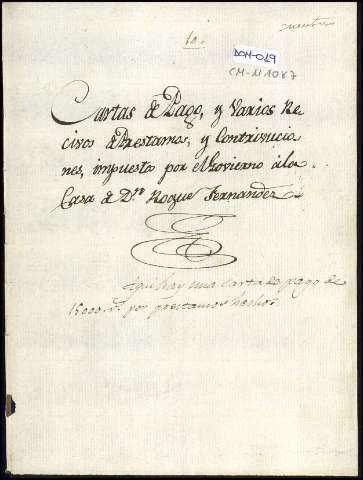 cuentas
10.
DOM-019
CM-11087
Cartas de Pago, y Varios Re
civos de Prestamos, y Contrivucio
nes, impuesto por el Govierno á la
Casa de Dn. Roque Fernandez
Aquí hay una carta de pago de
15000 rs. por prestamos hechos